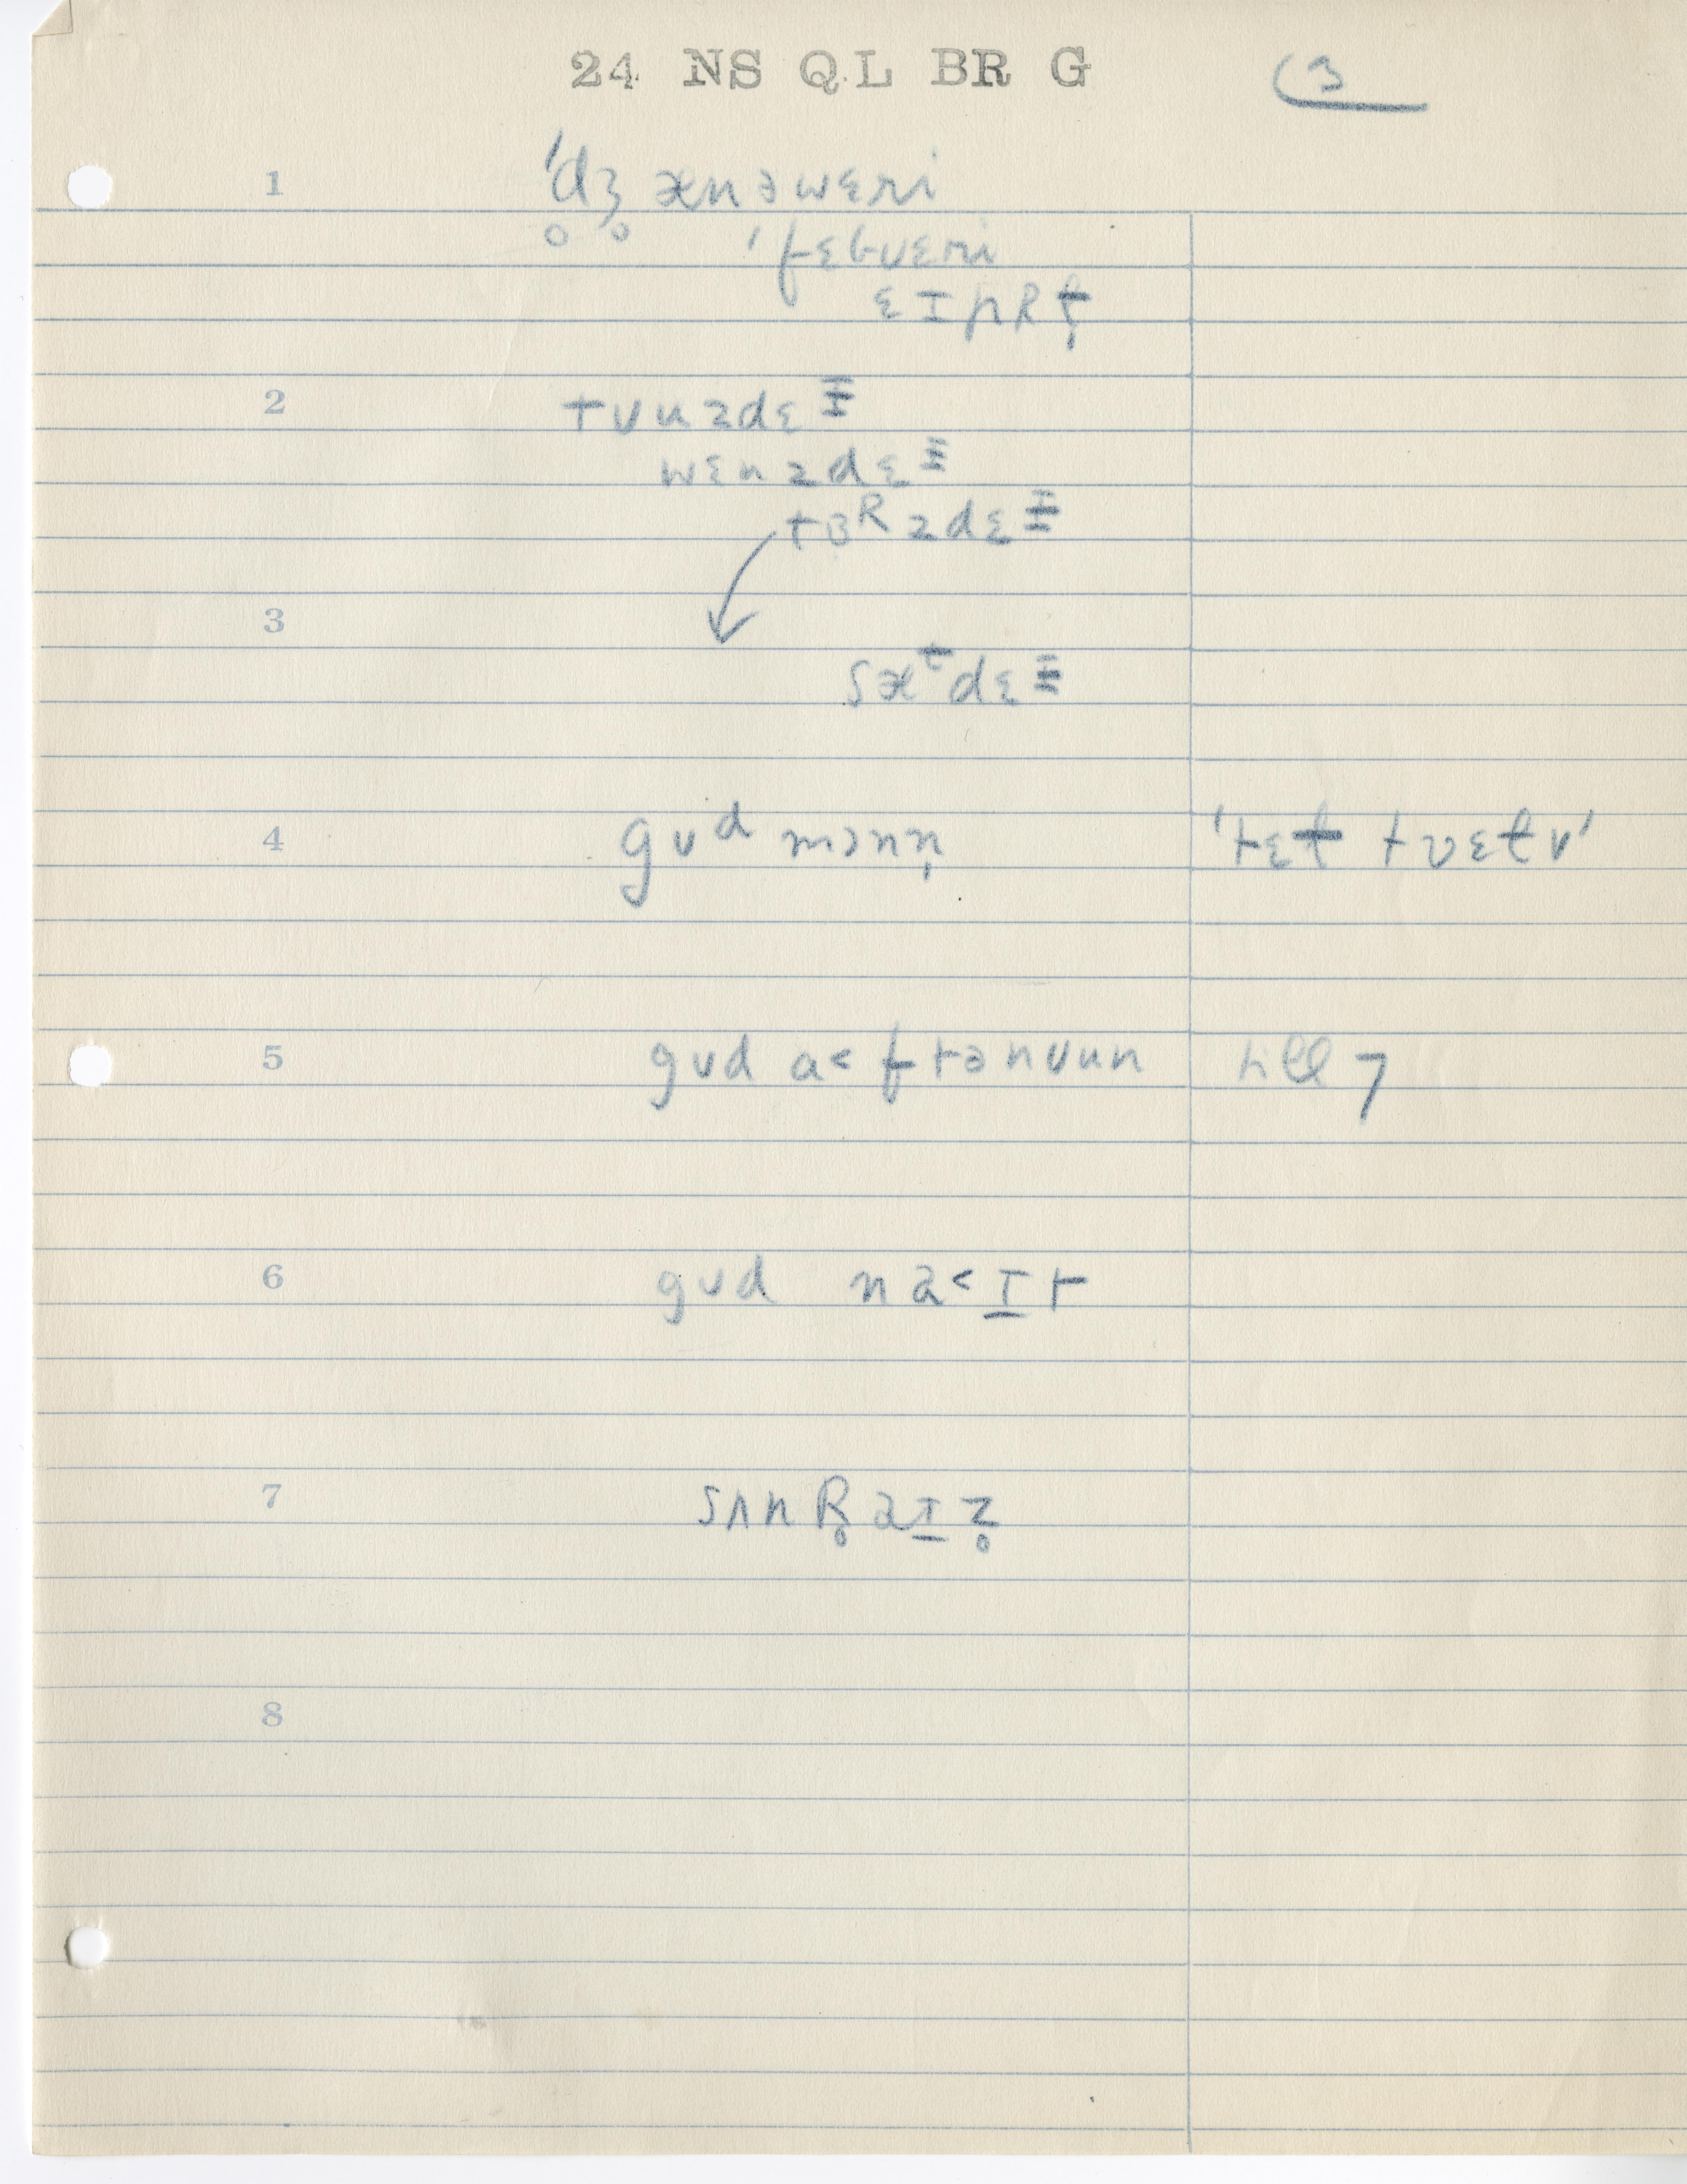 24 NS QL BR G (3
1 ˈd̥ʒ̥ænəwɛri
ˈfɛbuɛri
ɛɪprɫ̩
2 tunzdɛᵻ
wɛnzdɛᵻ
tɜᴿzdɛᵻ
3
sæᵗdɛᵻ
4 guᵈ mɔnn̩ 'tɛɫ tʋɛɫv'
5 gud a˂ftənun till 7
6 gud na˂ɪ̠t
7 sʌnR̥aɪ̠z̥
8